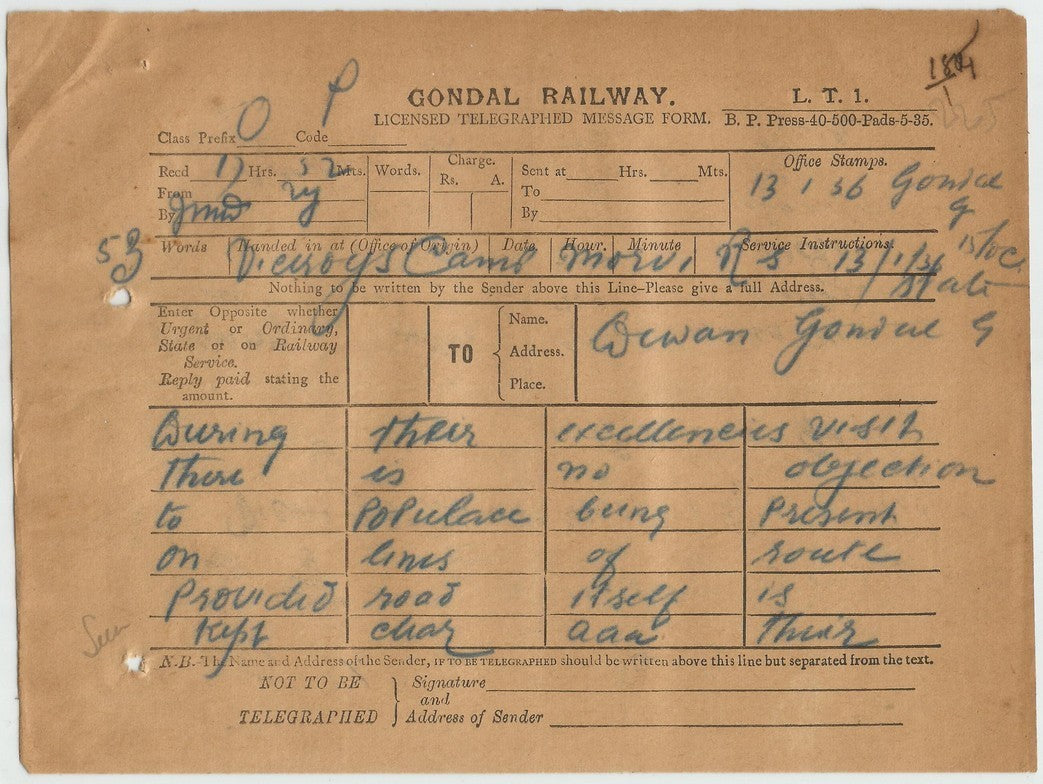 GONDAL RAILWAY.
L. T. 1.
LICENSED TELEGRAPHED MESSAGE FORM.
B. P. Press-40-500-Pads-5-35.
Class Prefix O Code P
Recd 17 Hrs. 52 Mts.
From
By
Words.
Charge.
Rs. A.
Sent at Hrs. Mts.
To
By
Office Stamps.
13 1 36 Gondal
53
Words Handed in at (Office of Origin) Date Hour. Minute Service Instructions.
Viceroys Camp Morvi R S 13/1/36
State
Nothing to be written by the Sender above this Line-Please give a full Address.
Enter Opposite whether
Urgent or Ordinary,
State or on Railway
Service.
Reply paid stating the
amount.
TO
Name.
Address.
Place.
Dewan Gondal G
During their excellencies visit
there is no objection
to Populace being Present
on lines of route
Provided road itself is
Kept clear aaa Their
Seen
N.B.-The Name and Address of the Sender, IF TO BE TELEGRAPHED should be written above this line but separated from the text.
NOT TO BE
TELEGRAPHED
Signature
and
Address of Sender